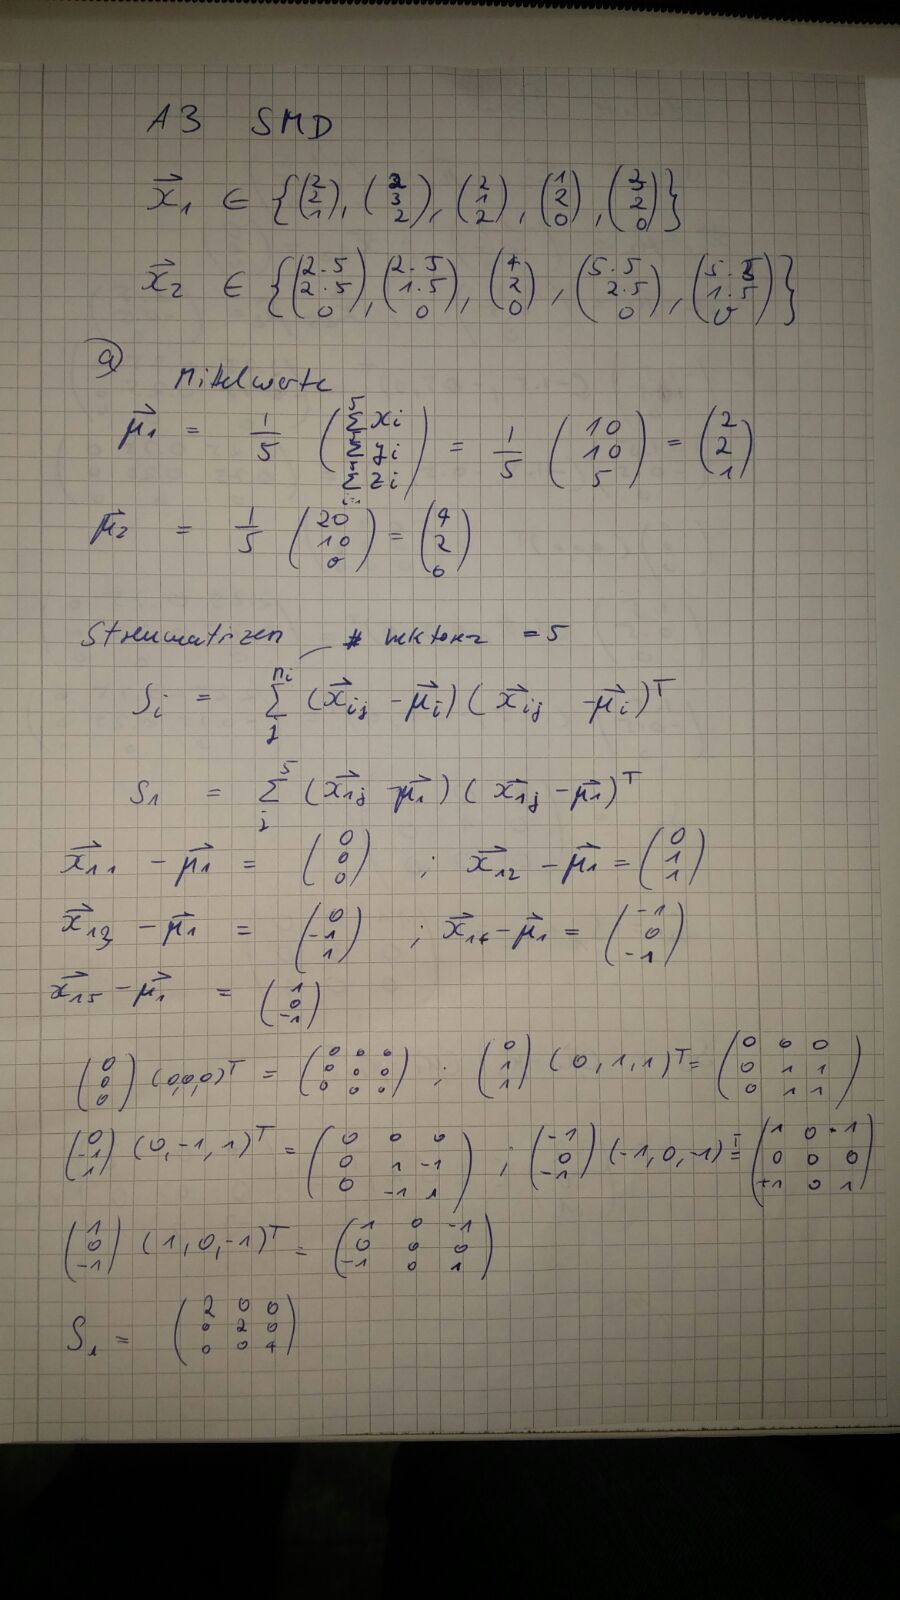 A3 SMD
x⃗₁ ∈ {(2 2 1), (2 3 2), (2 1 2), (1 2 0), (3 2 0)}
x⃗₂ ∈ {(2.5 2.5 0), (2.5 1.5 0), (4 2 0), (5.5 2.5 0), (5.5 1.5 0)}
a) Mittelwerte
μ⃗₁ = 1/5 (Σ⁵xi Σyi Σzi) = 1/5 (10 10 5) = (2 2 1)
μ⃗₂ = 1/5 (20 10 0) = (4 2 0)
Streumatrizen # Vektoren = 5
Si = Σ_j^{ni} (x⃗ij - μ⃗i)(x⃗ij - μ⃗i)ᵀ
S₁ = Σ_j^5 (x⃗₁j - μ⃗₁)(x⃗₁j - μ⃗₁)ᵀ
x⃗₁₁ - μ⃗₁ = (0 0 0) ; x⃗₁₂ - μ⃗₁ = (0 1 1)
x⃗₁₃ - μ⃗₁ = (0 -1 1) ; x⃗₁₄ - μ⃗₁ = (-1 0 -1)
x⃗₁₅ - μ⃗₁ = (1 0 -1)
(0 0 0) (0,0,0)ᵀ = (0 0 0 / 0 0 0 / 0 0 0) ; (0 1 1) (0, 1, 1)ᵀ = (0 0 0 / 0 1 1 / 0 1 1)
(0 -1 1) (0, -1, 1)ᵀ = (0 0 0 / 0 1 -1 / 0 -1 1) ; (-1 0 -1) (-1, 0, -1)ᵀ = (1 0 +1 / 0 0 0 / +1 0 1)
(1 0 -1) (1, 0, -1)ᵀ = (1 0 -1 / 0 0 0 / -1 0 1)
S₁ = (2 0 0 / 0 2 0 / 0 0 4)